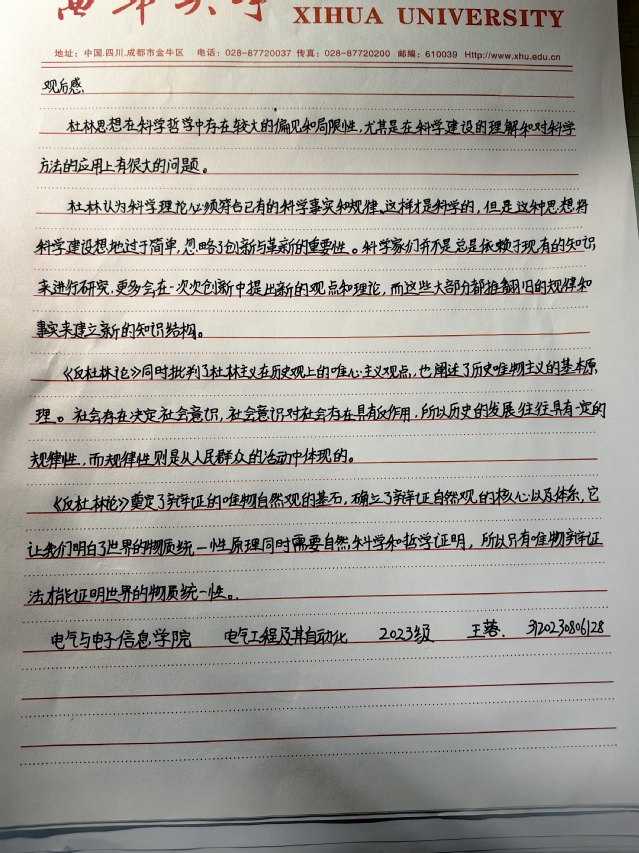 西华大学 XIHUA UNIVERSITY
地址：中国.四川.成都市金牛区 电话：028-87720037 传真：028-87720200 邮编：610039 Http://www.xhu.edu.cn
观后感:
杜林思想在科学哲学中存在较大的偏见和局限性,尤其是在科学建设的理解和对科学
方法的应用上有很大的问题。
杜林认为科学理论必须符合已有的科学事实和规律,这样才是科学的，但是这种思想将
科学建设想地过于简单,忽略了创新与革新的重要性。科学家们并不是总是依赖于现有的知识
来进行研究,更多会在一次次创新中提出新的观点和理论,而这些大部分都推翻旧的规律和
事实来建立新的知识结构。
《反杜林论》同时批判了杜林主义在历史观上的唯心主义观点,也阐述了历史唯物主义的基本原
理。社会存在决定社会意识,社会意识对社会存在具有反作用.所以历史的发展往往具有一定的
规律性,而规律性则是从人民群众的活动中体现的。
《反杜林论》奠定了辩证的唯物自然观的基石,确立了辩证自然观的核心以及体系,它
让我们明白了世界的物质统一性原理同时需要自然科学和哲学证明,所以只有唯物辩证
法才能证明世界的物质统一性。
电气与电子信息学院 电气工程及其自动化 2023级 王蓉. 3120230806128